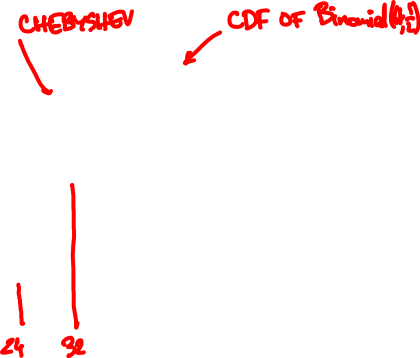 CHEBYSHEV
CDF OF Binomial(n,½)
24 32